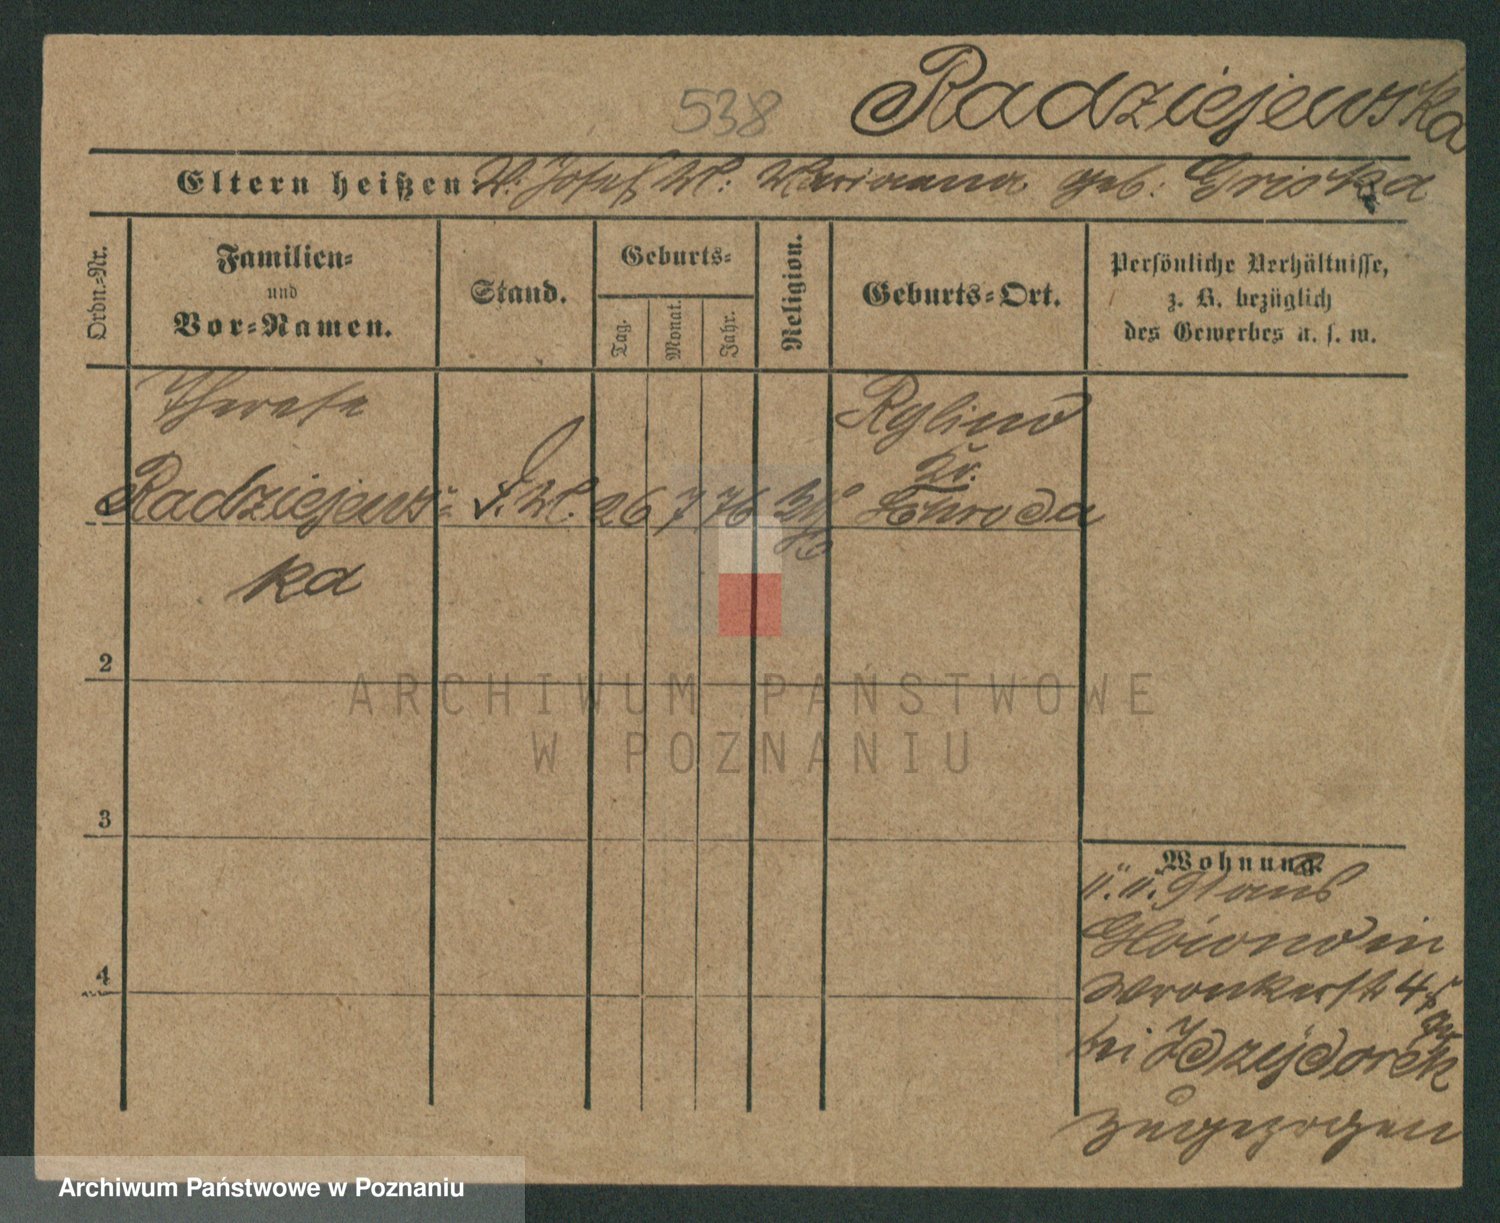 538 Radziejewska
Eltern heißen: V. Josef M: Marianna geb: Griska
Ordn.-Nr.
Familien-
und
Vor-Namen.
Stand.
Geburts-
Tag.
Monat.
Jahr.
Religion.
Geburts-Ort.
Persönliche Verhältnisse,
z. B. bezüglich
des Gewerbes u. s. w.
Therese
Radziejews-
ka
26 7 76
Kr.
Schroda
2
3
4
Wohnung.
91 aus
in
Wronkerstr 4
bei
zugezogen
ARCHIWUM PAŃSTWOWE
W POZNANIU
Archiwum Państwowe w Poznaniu